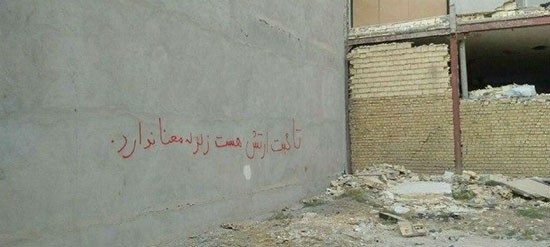 تا کیت ارتش هست زلزله معنا ندارد.